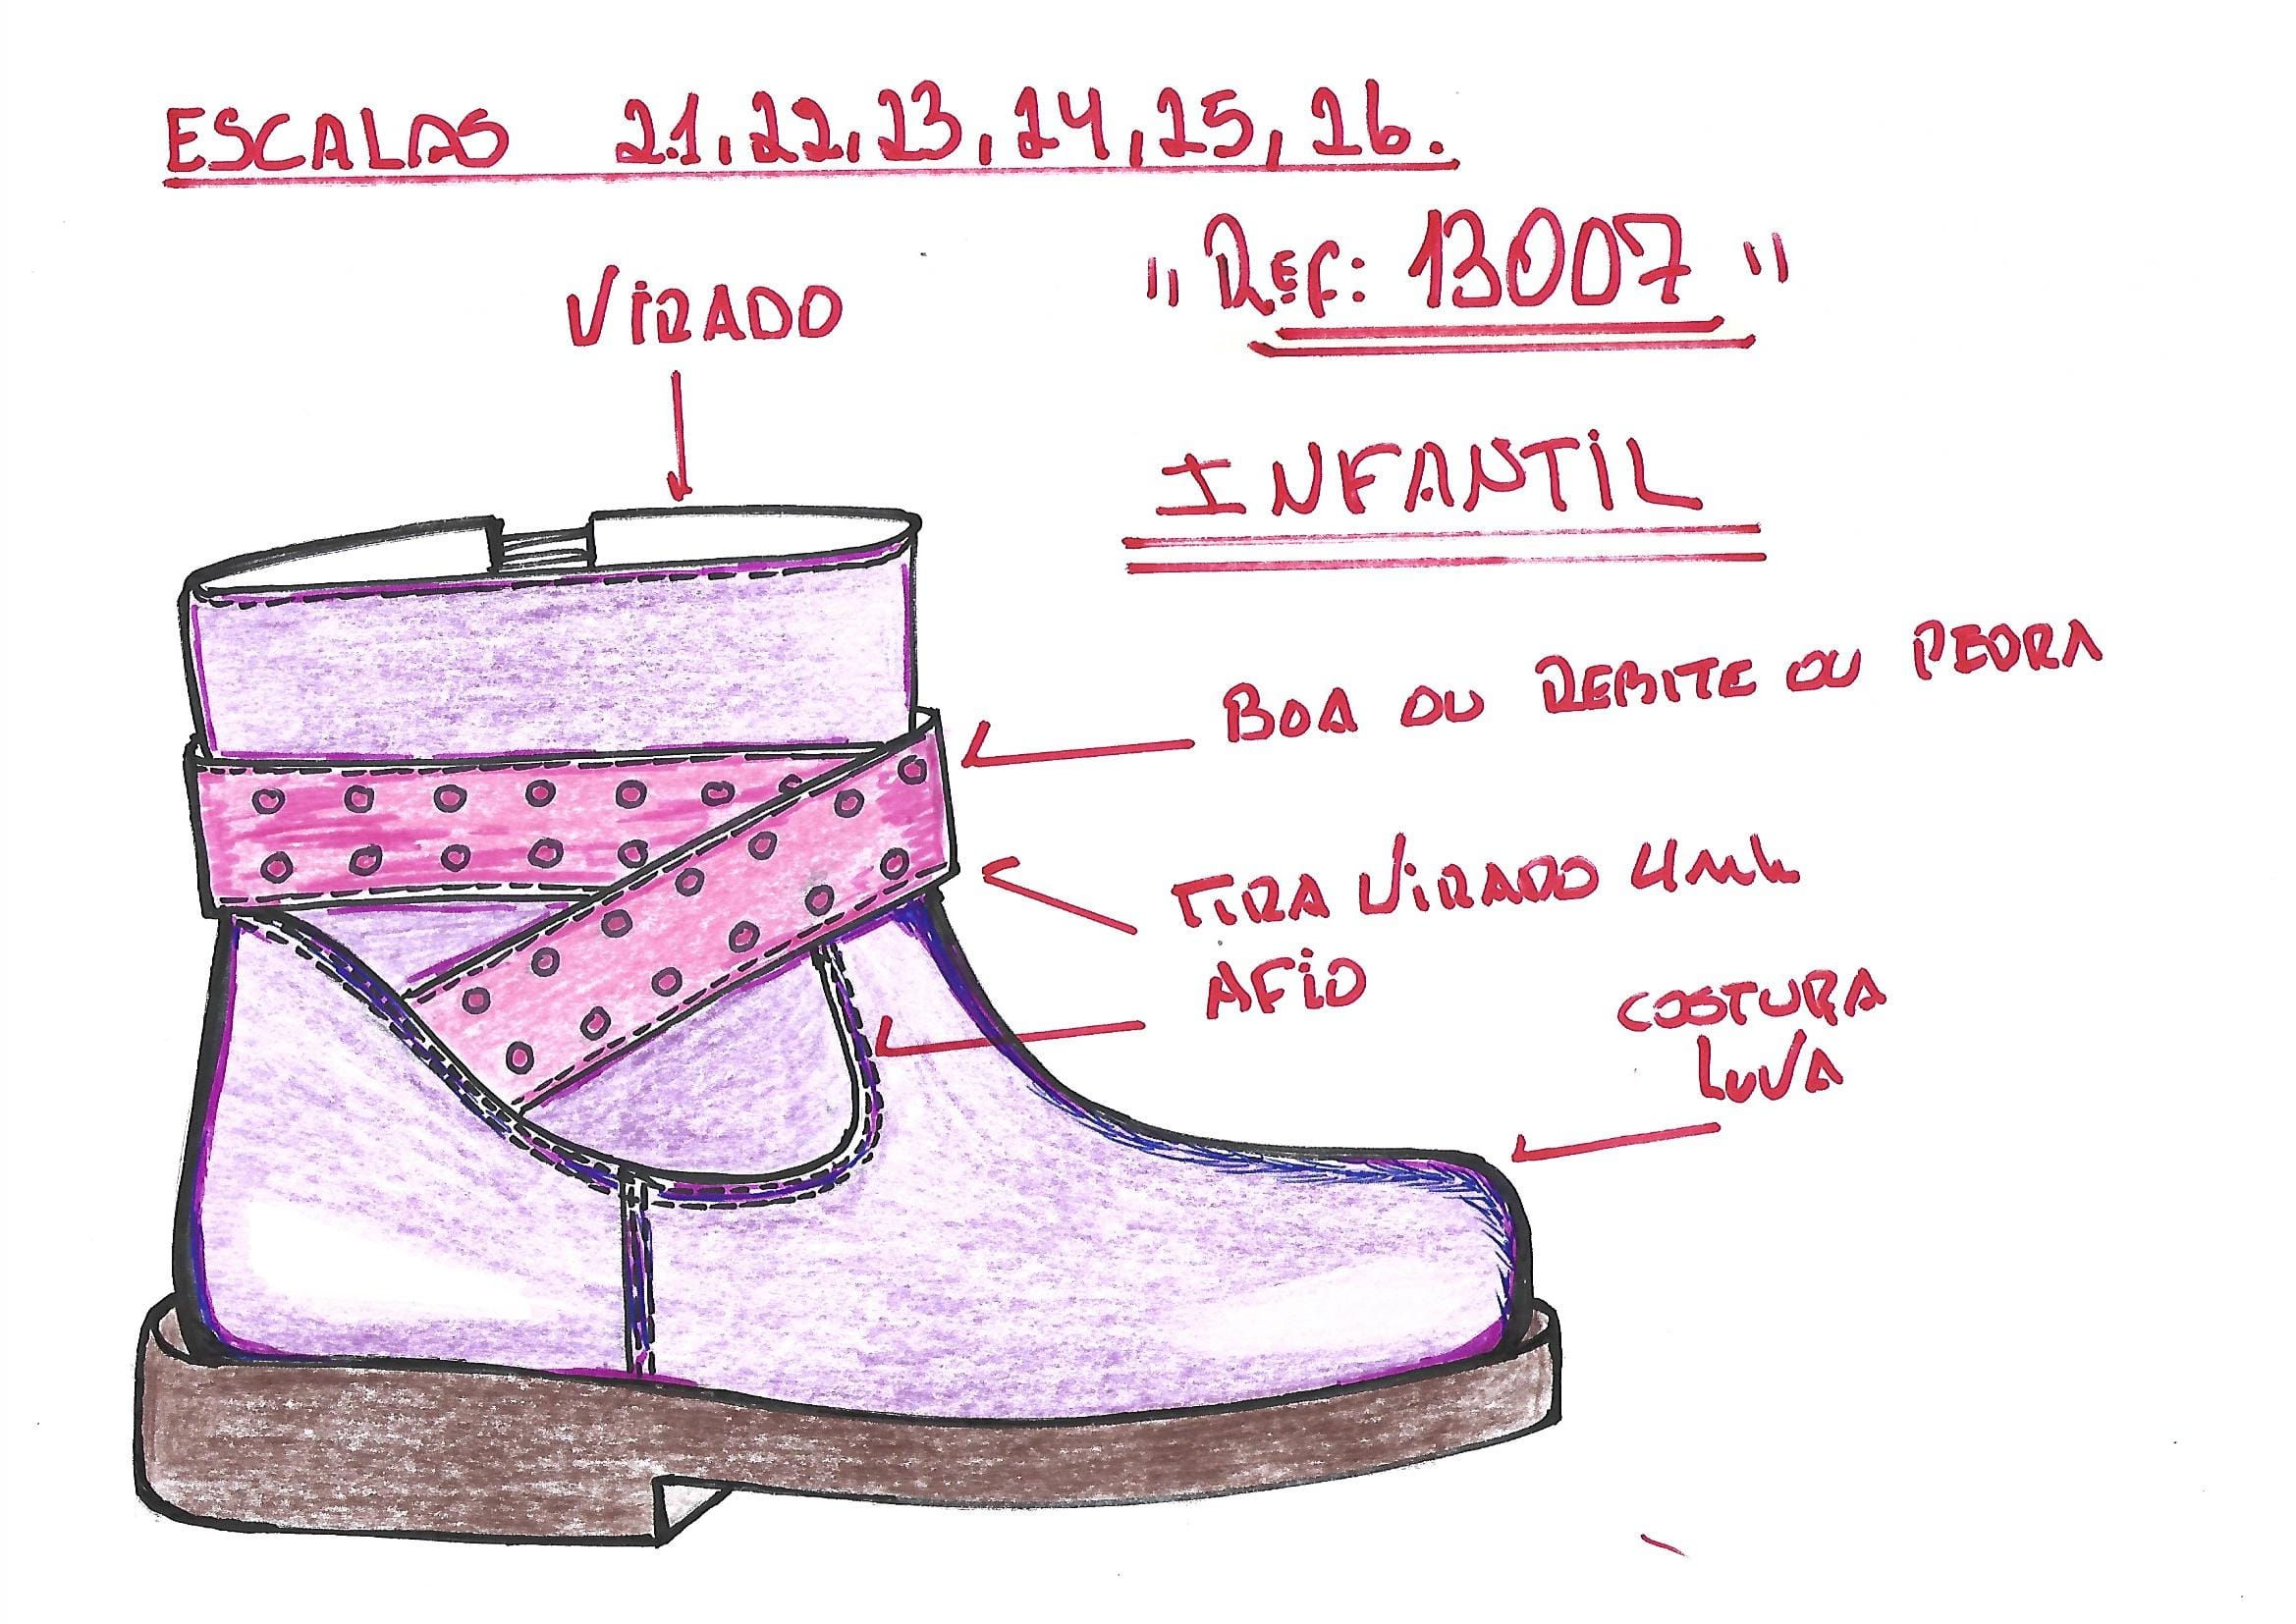 ESCALAS 21, 22, 23, 24, 25, 26.
"Ref: 13007"
VIRADO
INFANTIL
BOA OU REBITE OU PEDRA
TIRA VIRADO
AFIO
COSTURA
LUVA